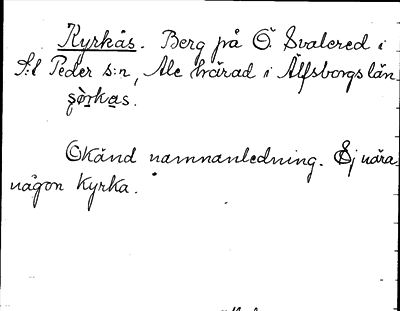 Kyrkås. Berg på Ö. Svalered i
S:t Peder s:n, Ale härad i Älfsborgs län
Okänd namnanledning. Ej nära
någon kyrka.